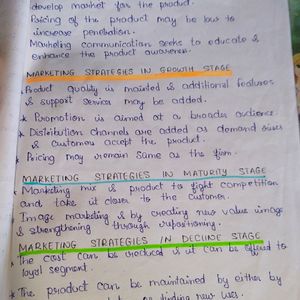 develop market for the product.
Pricing of the product may be low to
increase penetration.
Marketing communication seeks to educate &
enhance the product awareness.
MARKETING STRATEGIES IN GROWTH STAGE
* Product quality is mainted & additional features
& support service may be added.
* Promotion is aimed at a broader audience.
* Distribution channels are added as demand rises
& customers accept the product.
* Pricing may remain same as the firm.
MARKETING STRATEGIES IN MATURITY STAGE
* Marketing mix & product to fight competition
and take it closer to the customer.
* Image marketing & by creating new value image
& strengthening through repositioning.
MARKETING STRATEGIES IN DECLINE STAGE
* The cost can be reduced & it can be offered to
loyal segment.
* The product can be maintained by either by
or finding new uses.